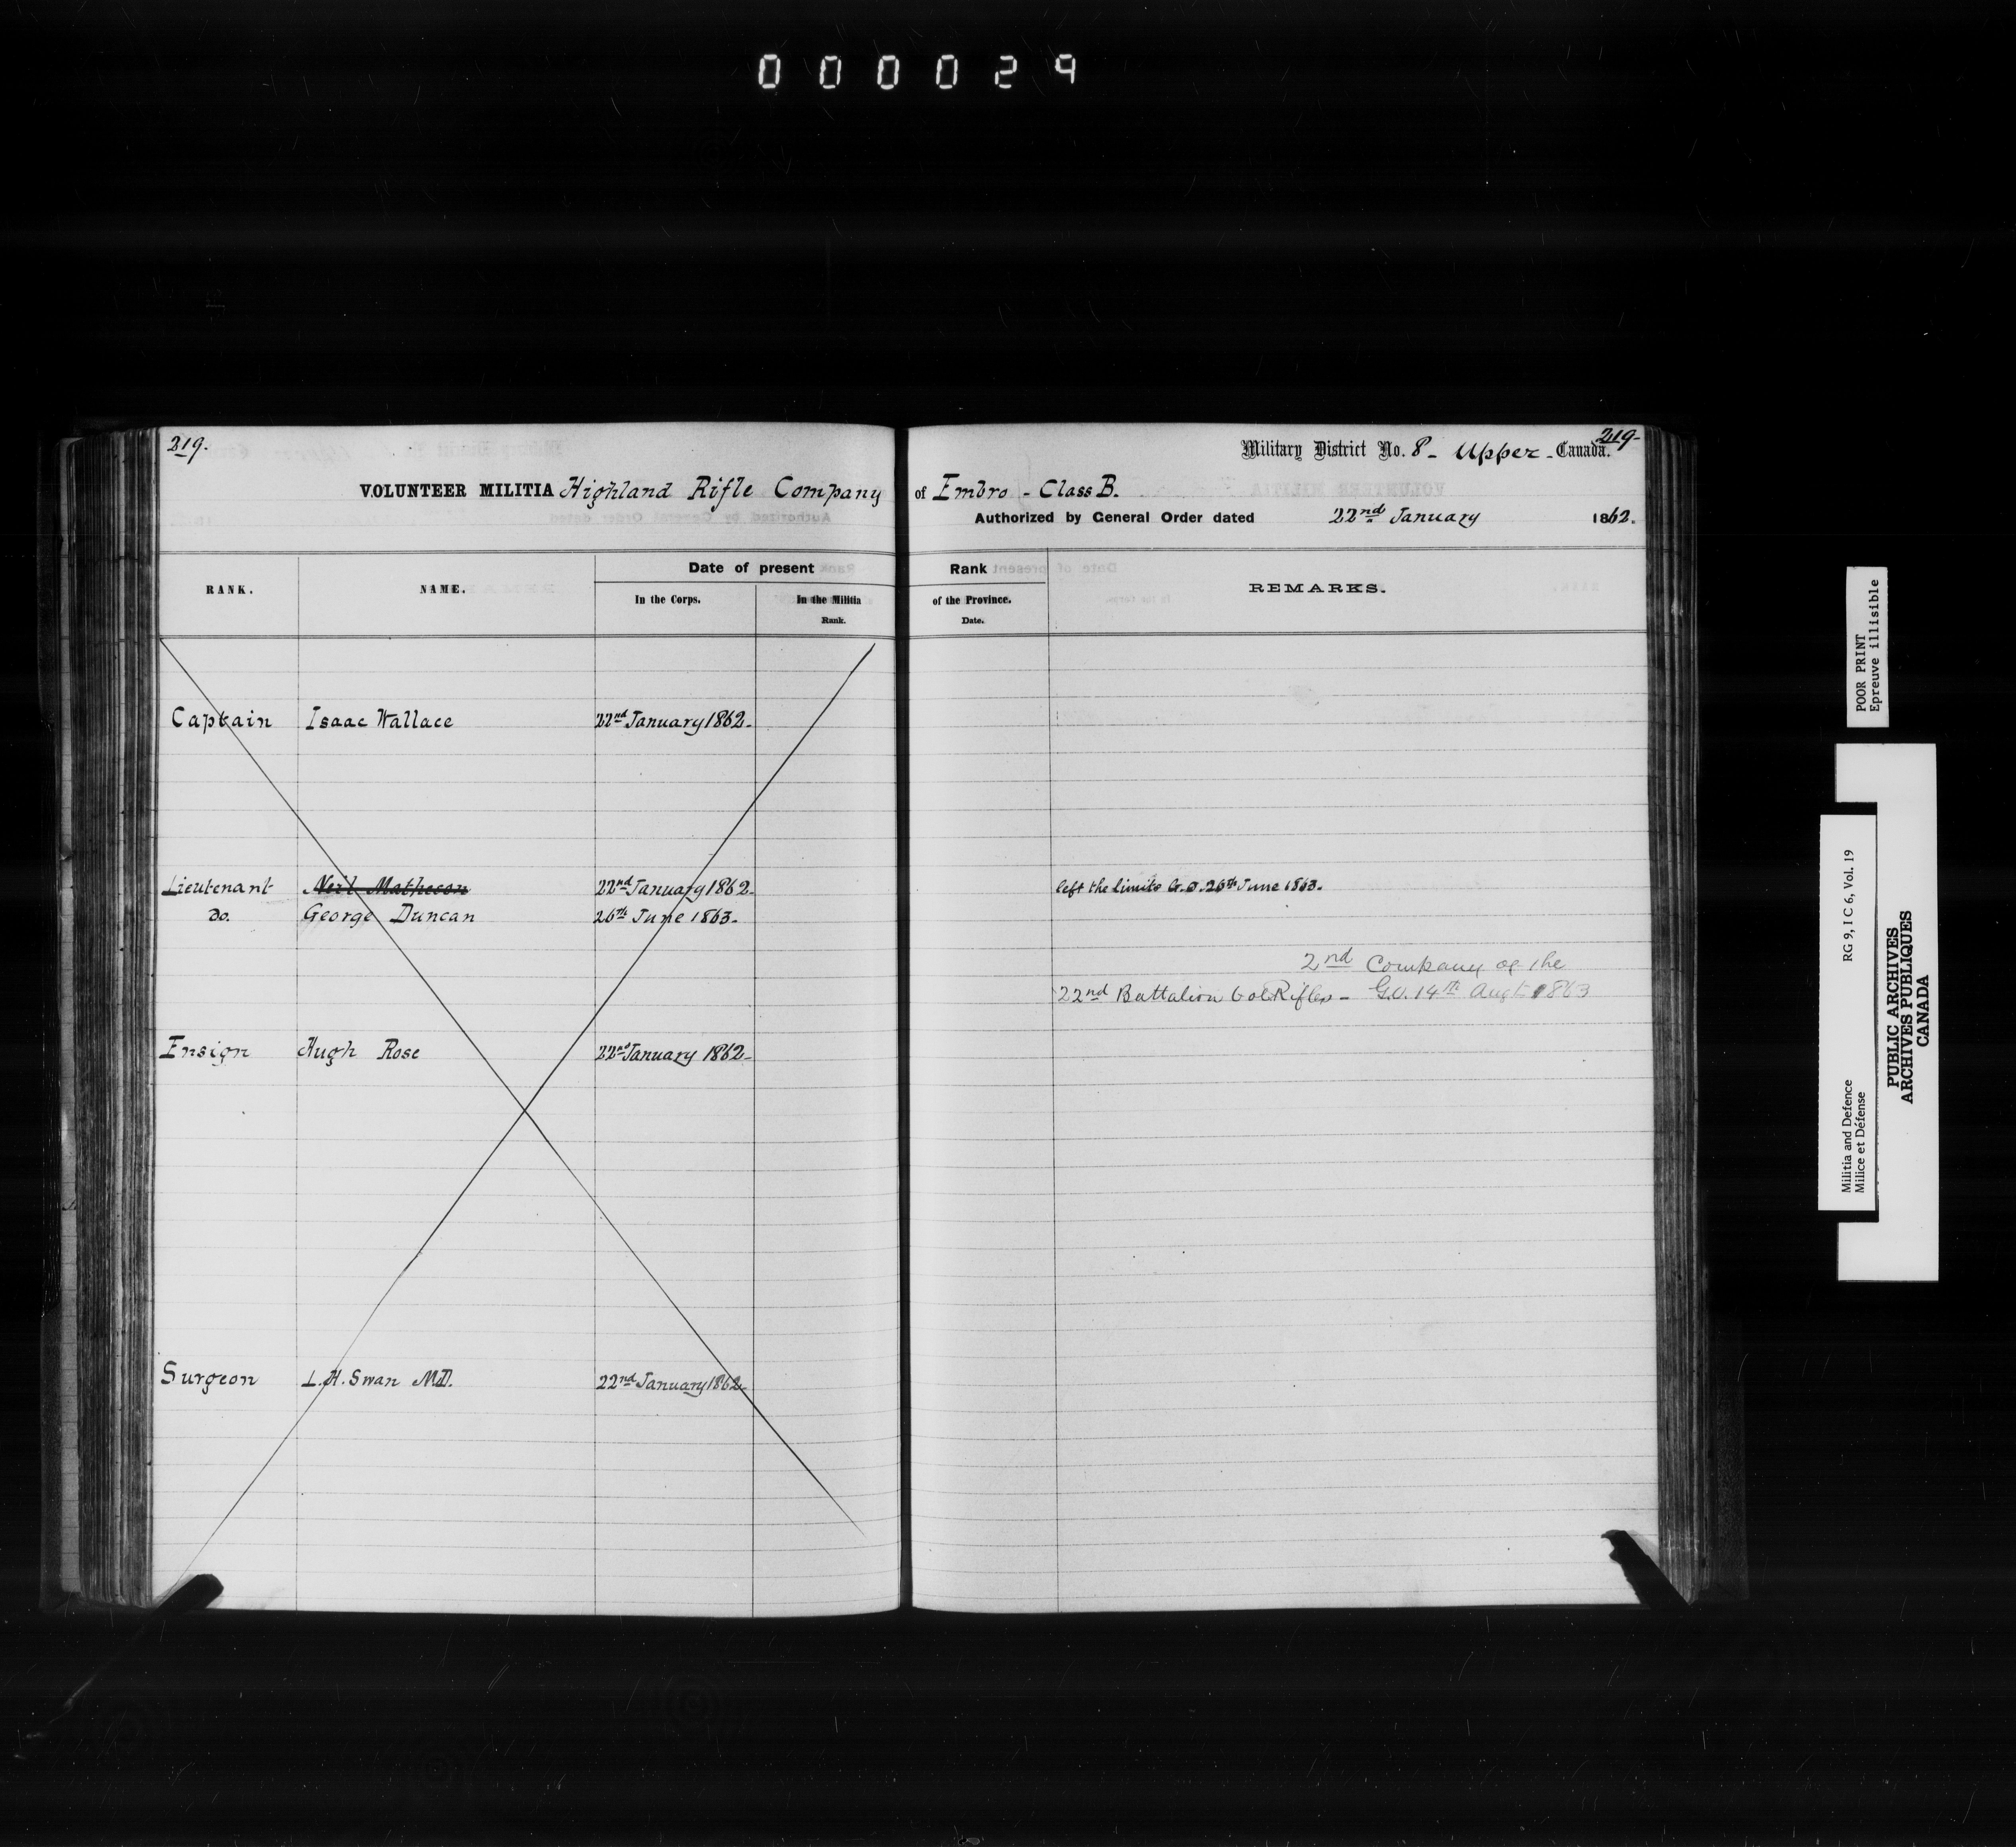 000029
219.
Military District No. 8 - Upper - Canada.
219-
VOLUNTEER MILITIA Highland Rifle Company of Embro - Class B.
Authorized by General Order dated 22nd January 1862.
RANK. NAME. Date of present Rank REMARKS.
In the Corps. In the Militia of the Province.
Rank. Date.
Captain Isaac Wallace 22nd January 1862-
Lieutenant Neil Matheson 22nd January 1862- left the limits G.O. 26th June 1863.
Do. George Duncan 26th June 1863-
2nd Company of the
22nd Battalion Vol Rifles - G.O. 14th Augt 1863
Ensign Hugh Rose 22nd January 1862-
Surgeon L.H. Swan M.D. 22nd January 1862-
POOR PRINT
Epreuve illisible
RG 9, I C 6, Vol. 19
Militia and Defence
Milice et Défense
PUBLIC ARCHIVES
ARCHIVES PUBLIQUES
CANADA